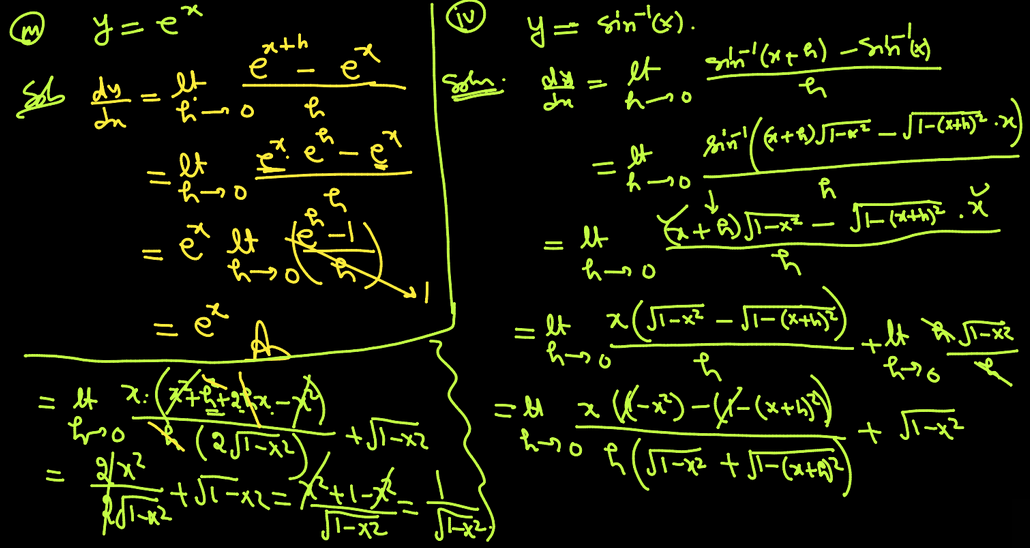 (iii) y = e^x
Sol^n dy/dx = lt h→0 (e^(x+h) − e^x)/h
= lt h→0 (e^x · e^h − e^x)/h
= e^x lt h→0 ((e^h − 1)/h) → 1
= e^x A
(iv) y = sin⁻¹(x).
Soln. dy/dx = lt h→0 (sin⁻¹(x+h) − sin⁻¹(x))/h
= lt h→0 sin⁻¹((x+h)√(1−x²) − √(1−(x+h)²) · x)/h
= lt h→0 ((x+h)√(1−x²) − √(1−(x+h)²) · x)/h
= lt h→0 x(√(1−x²) − √(1−(x+h)²))/h + lt h→0 h√(1−x²)/h
= lt h→0 x((1−x²) − (1−(x+h)²))/(h(√(1−x²) + √(1−(x+h)²))) + √(1−x²)
= lt h→0 x·(x²+h²+2hx−x²)/(h(2√(1−x²))) + √(1−x²)
= 2x²/(2√(1−x²)) + √(1−x²) = (x²+1−x²)/√(1−x²) = 1/√(1−x²).